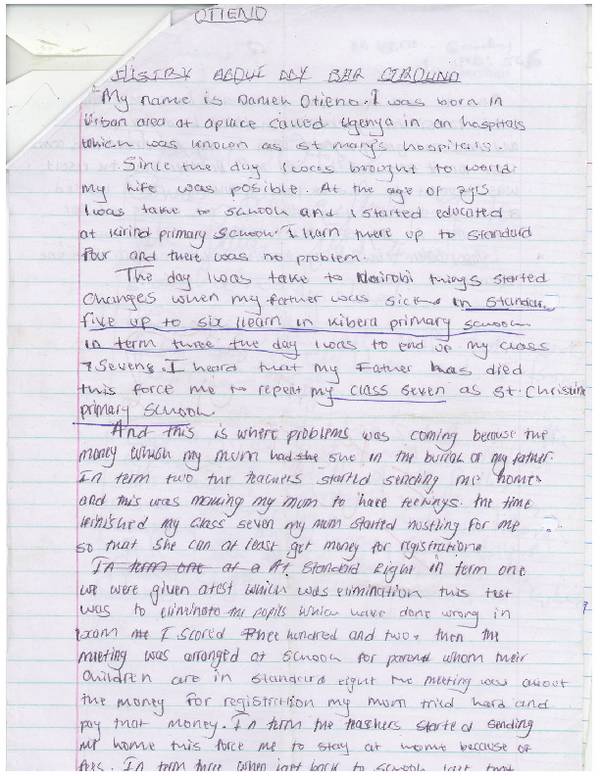 OTIENO
HISTRY ABOUT MY BAR GROUND
My name is Daniel Otieno. I was born in
Urban area at aplace called ugenya in an hospitals
which was unown as st mary's hospitals.
Since the day I was brought to world
my life was posible. At the age of 7yrs
I was take to school and I started educated
at Kirind primary school. I learn there up to standard
four and there was no problem.
The day I was take to Nairobi things started
Changes when my father was sick in standar
five up to six I learn in Kibera primary school
in term three the day I was to end up my class
7 Sevens. I heard that my Father has died
this force me to repeat my class seven as St. Christine
primary school.
And this is where problems was coming because the
money which my mum had she in the burial of my father.
In term two the teachers started sending me home
and this was making my mum to have feelings. the time
I finished my class seven my mum started hustling for me
so that she can at least get money for registration.
In term one at a At Standard Eight in term one
we were given atest which was elimination this test
was to eliminate the pupils which have done wrong in
exam I scored Three hundred and two, then the
meeting was arranged at school for parent whom their
children are in standard eight the meeting was about
the money for registrition my mum tried hard and
pay that money. In term the teachers started sending
me home this force me to stay at home because of
fees. In term three when I get back to school last that